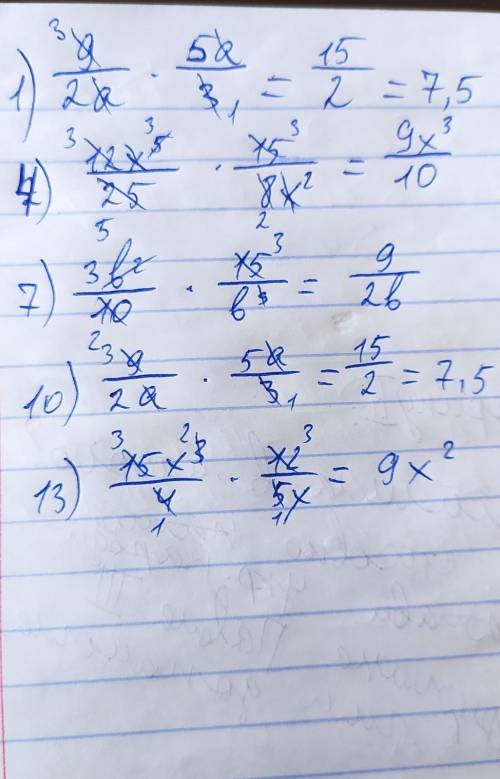 1) 9/2a · 5a/3 = 15/2 = 7,5
4) 12x⁵/25 · 15/8x² = 9x³/10
7) 3b²/10 · 15/b³ = 9/2b
10) 9/2a · 5a/3 = 15/2 = 7,5
13) 15x³/4 · 12/5x = 9x²